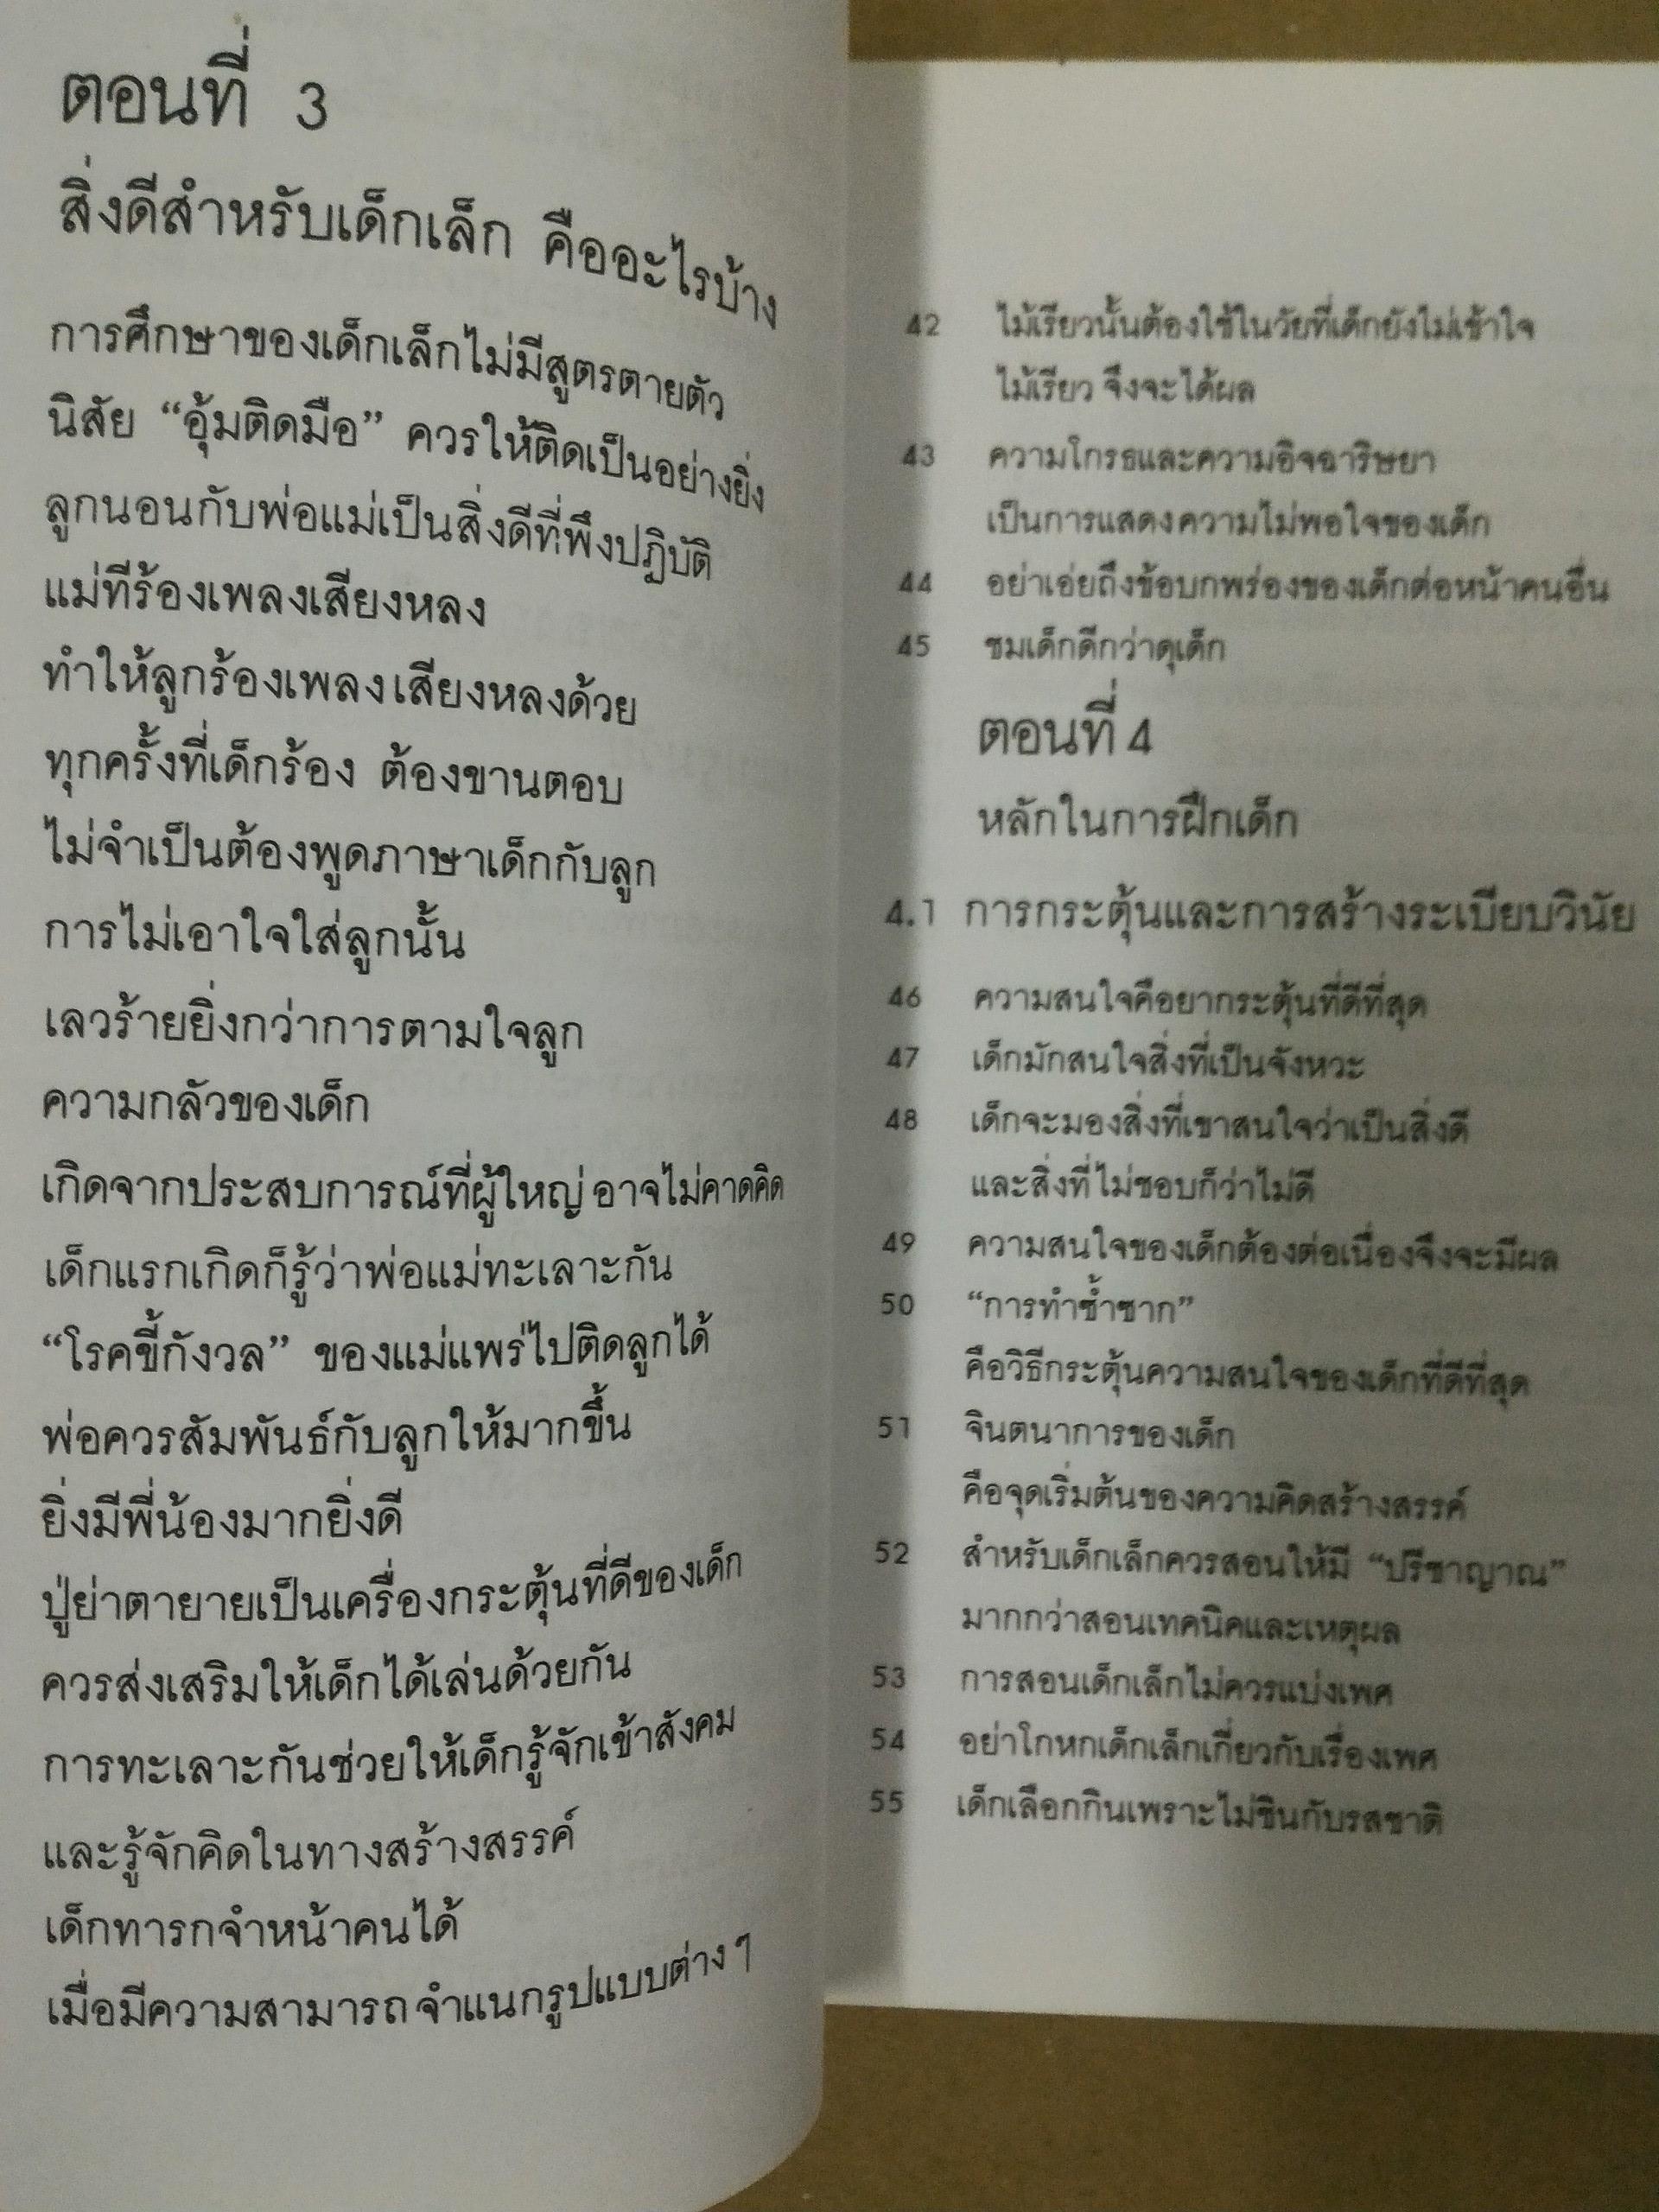 ตอนที่ 3
สิ่งดีสำหรับเด็กเล็ก คืออะไรบ้าง
การศึกษาของเด็กเล็กไม่มีสูตรตายตัว
นิสัย “อุ้มติดมือ” ควรให้ติดเป็นอย่างยิ่ง
ลูกนอนกับพ่อแม่เป็นสิ่งดีที่พึงปฏิบัติ
แม่ที่ร้องเพลงเสียงหลง
ทำให้ลูกร้องเพลงเสียงหลงด้วย
ทุกครั้งที่เด็กร้อง ต้องขานตอบ
ไม่จำเป็นต้องพูดภาษาเด็กกับลูก
การไม่เอาใจใส่ลูกนั้น
เลวร้ายยิ่งกว่าการตามใจลูก
ความกลัวของเด็ก
เกิดจากประสบการณ์ที่ผู้ใหญ่ อาจไม่คาดคิด
เด็กแรกเกิดก็รู้ว่าพ่อแม่ทะเลาะกัน
“โรคขี้กังวล” ของแม่แพร่ไปติดลูกได้
พ่อควรสัมพันธ์กับลูกให้มากขึ้น
ยิ่งมีพี่น้องมากยิ่งดี
ปู่ย่าตายายเป็นเครื่องกระตุ้นที่ดีของเด็ก
ควรส่งเสริมให้เด็กได้เล่นด้วยกัน
การทะเลาะกันช่วยให้เด็กรู้จักเข้าสังคม
และรู้จักคิดในทางสร้างสรรค์
เด็กทารกจำหน้าคนได้
เมื่อมีความสามารถ จำแนกรูปแบบต่าง ๆ
42 ไม้เรียวนั้นต้องใช้ในวัยที่เด็กยังไม่เข้าใจ
ไม้เรียว จึงจะได้ผล
43 ความโกรธและความอิจฉาริษยา
เป็นการแสดงความไม่พอใจของเด็ก
44 อย่าเอ่ยถึงข้อบกพร่องของเด็กต่อหน้าคนอื่น
45 ชมเด็กดีกว่าดุเด็ก
ตอนที่ 4
หลักในการฝึกเด็ก
4.1 การกระตุ้นและการสร้างระเบียบวินัย
46 ความสนใจคือยากระตุ้นที่ดีที่สุด
47 เด็กมักสนใจสิ่งที่เป็นจังหวะ
48 เด็กจะมองสิ่งที่เขาสนใจว่าเป็นสิ่งดี
และสิ่งที่ไม่ชอบก็ว่าไม่ดี
49 ความสนใจของเด็กต้องต่อเนื่องจึงจะมีผล
50 “การทำซ้ำซาก”
คือวิธีกระตุ้นความสนใจของเด็กที่ดีที่สุด
51 จินตนาการของเด็ก
คือจุดเริ่มต้นของความคิดสร้างสรรค์
52 สำหรับเด็กเล็กควรสอนให้มี “ปรีชาญาณ”
มากกว่าสอนเทคนิคและเหตุผล
53 การสอนเด็กเล็กไม่ควรแบ่งเพศ
54 อย่าโกหกเด็กเล็กเกี่ยวกับเรื่องเพศ
55 เด็กเลือกกินเพราะไม่ชินกับรสชาติ